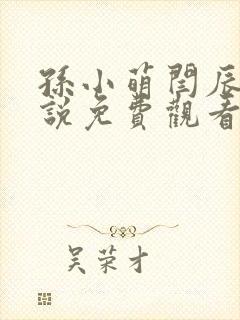 孫小萌閆辰
說免費觀看
吴荣才